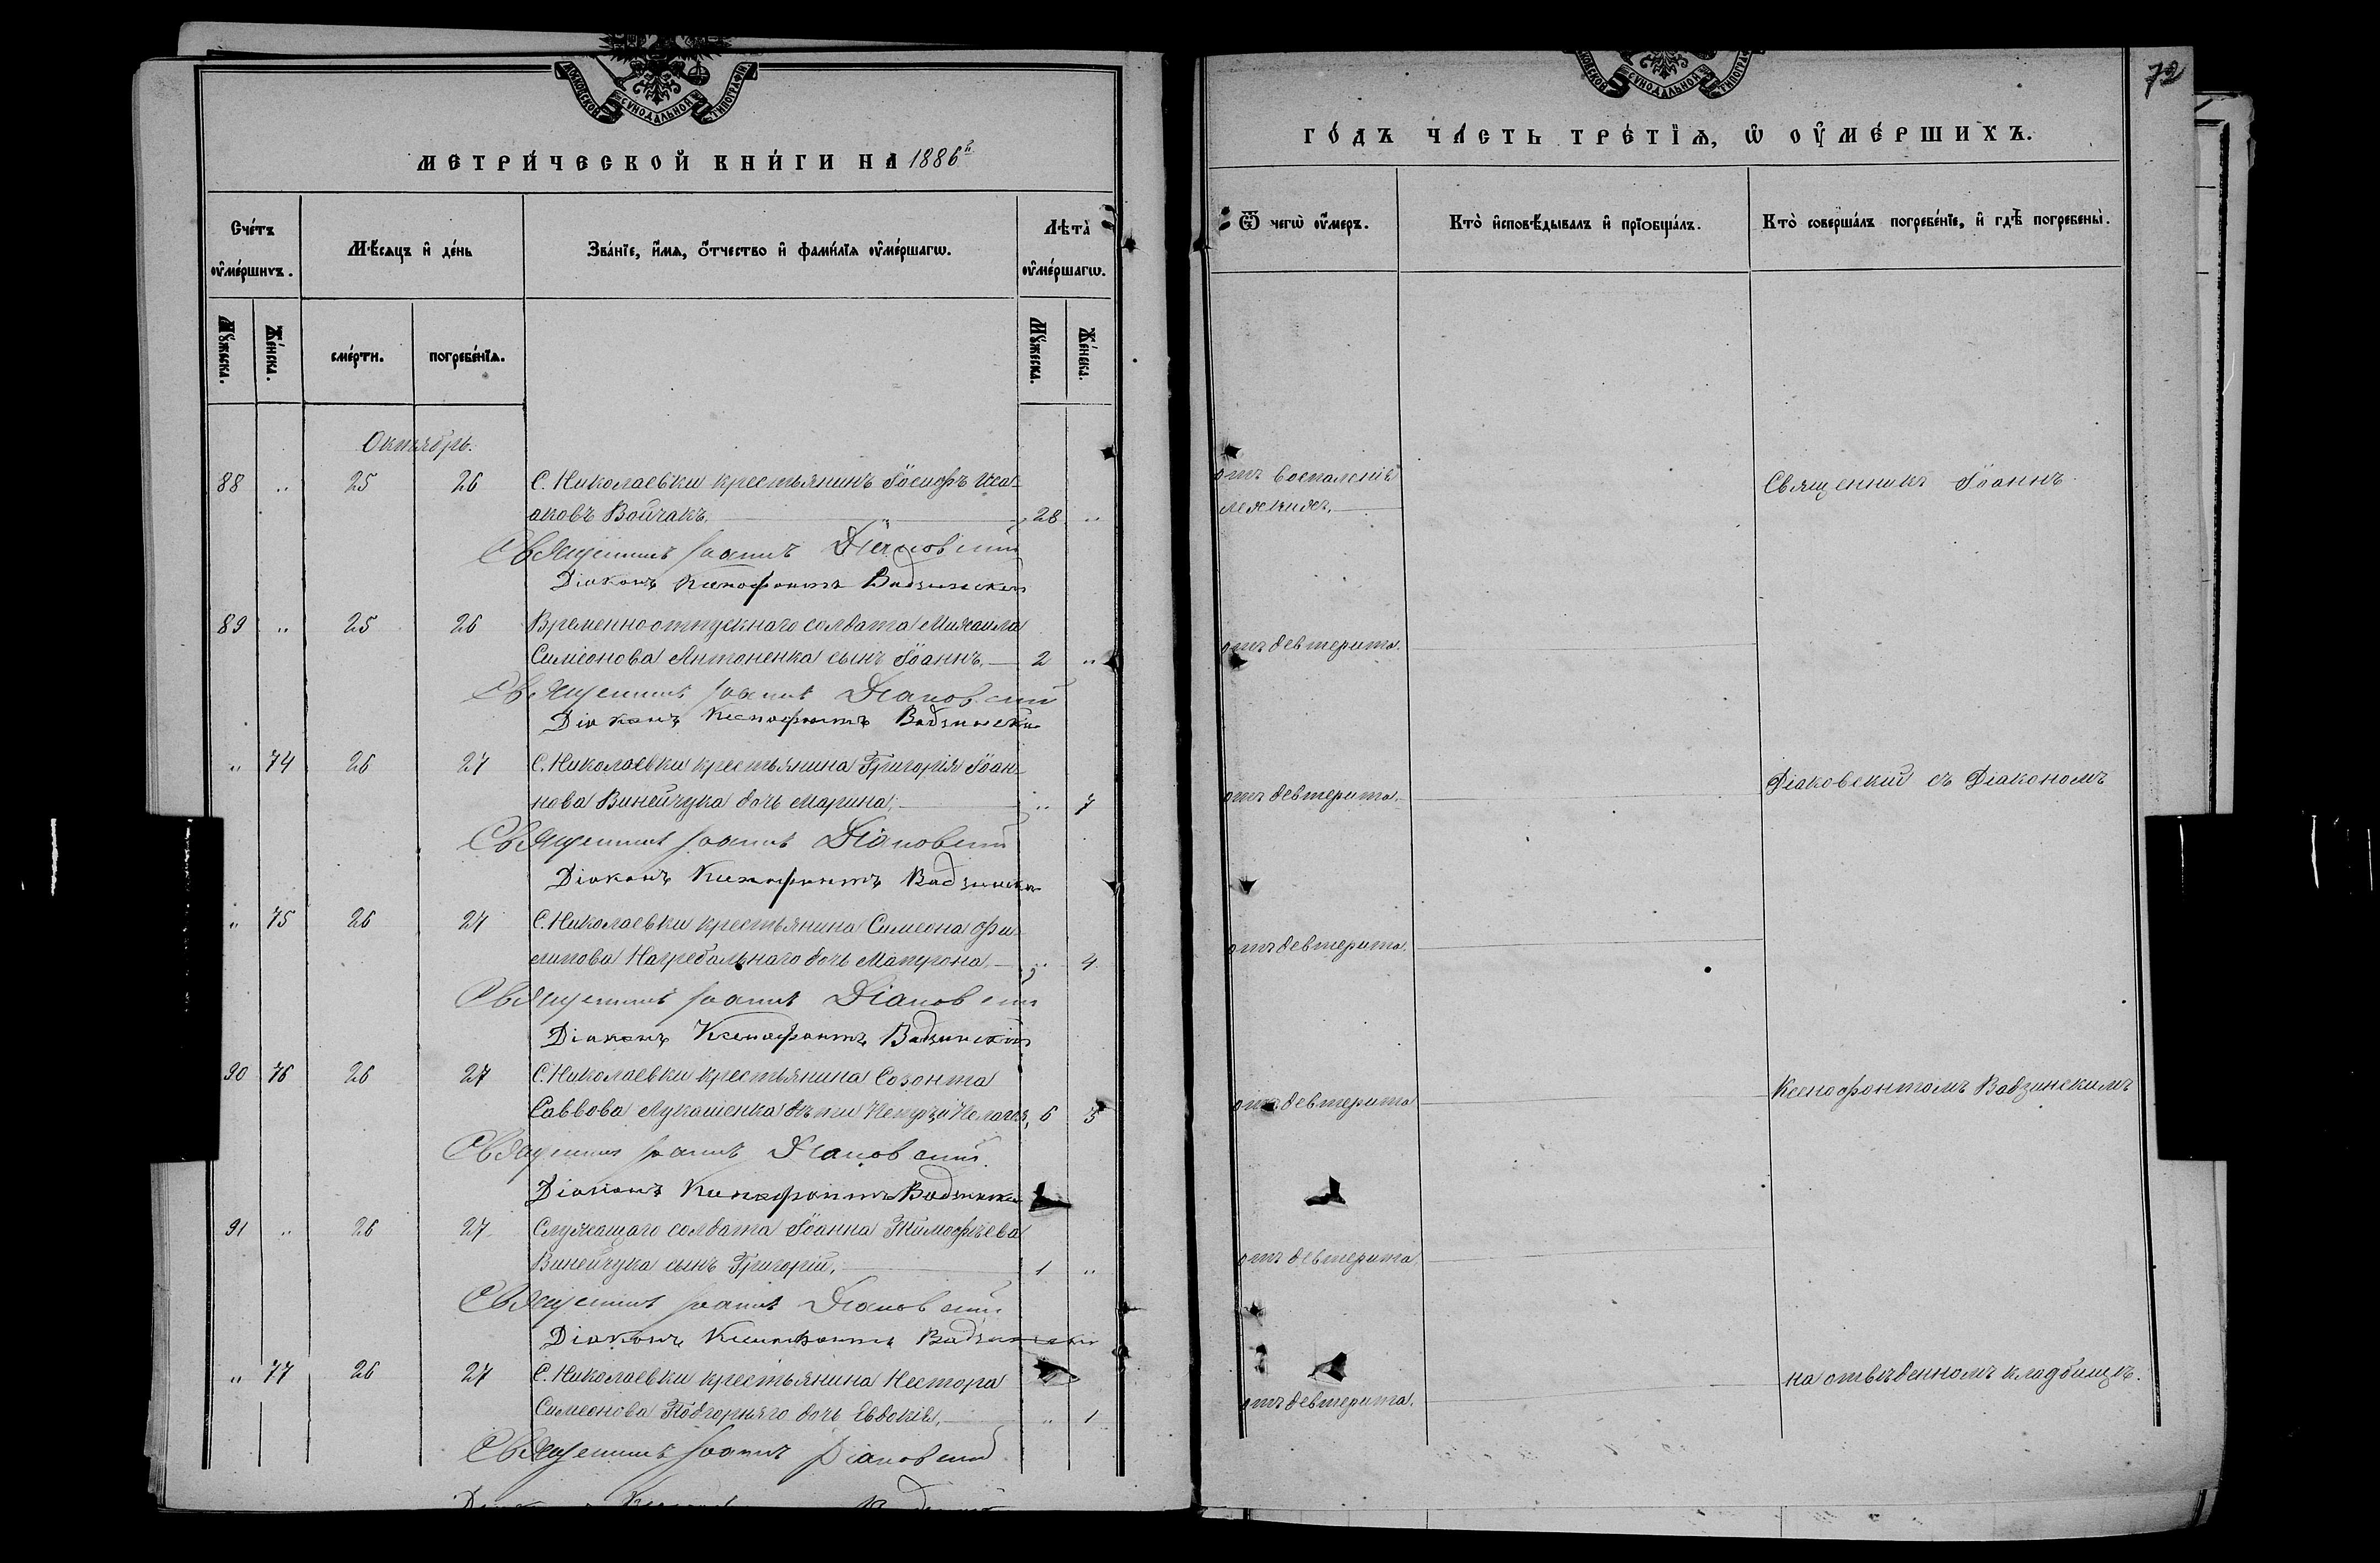 МОСКОВСКОЙ СѴНОДАЛЬНОЙ ТИПОГРАФІИ
МЕТРИ́ЧЕСКОЙ КНИ́ГИ НА 1886 г.
Сче́тъ ᲂу҆ме́ршихъ.
Мѣ́сяцъ и҆ де́нь
Зва́нїе, и҆́мѧ, ѻ҆́тчество и҆ фами́лїѧ ᲂу҆ме́ршагѡ.
Лѣ́та ᲂу҆ме́ршагѡ.
Мꙋ́жеска.
Же́нска.
сме́рти.
погребе́нїѧ.
Мꙋ́жеска.
Же́нска.
Октябрь.
88 „ 25 26 С. Николаевки крестьянинъ Іосифъ Иса-
аковъ Войчакъ. 28 „
Священникъ Іоаннъ Діаковскій
Діаконъ Ксенофонтъ Вадзинскій
89 „ 25 26 Временноотпускнаго солдата Михаила
Симеонова Антоненка сынъ Іоаннъ. 2 „
Священникъ Іоаннъ Діаковскій
Діаконъ Ксенофонтъ Вадзинскій
„ 74 26 27 С. Николаевки крестьянина Григорія Іоан-
нова Винейчука дочь Марина. „ 7
Священникъ Іоаннъ Діаковскій
Діаконъ Ксенофонтъ Вадзинскій
„ 75 26 27 С. Николаевки крестьянина Симеона Фи-
липова Нагребальнаго дочь Матрона. „ 4
Священникъ Іоаннъ Діаковскій
Діаконъ Ксенофонтъ Вадзинскій
90 76 26 27 С. Николаевки крестьянина Созонта
Саввова Лукашенка дѣти Петръ и Пелагія, 6 3
Священникъ Іоаннъ Діаковскій
Діаконъ Ксенофонтъ Вадзинскій
91 „ 26 27 Служащаго солдата Іоанна Тимофѣева
Винейчука сынъ Григорій. 1 „
Священникъ Іоаннъ Діаковскій
Діаконъ Ксенофонтъ Вадзинскій
„ 77 26 27 С. Николаевки крестьянина Нестора
Симеонова Подгорняго дочь Евдокія. „ 1
Священникъ Іоаннъ Діаковскій
72
МОСКОВСКОЙ СѴНОДАЛЬНОЙ ТИПОГРАФІИ
ГО́ДЪ ЧА́СТЬ ТРЕ́ТЇѦ, Ѡ҆ ОУ҆МЕ́РШИХЪ.
Ѿ чегѡ̀ ᲂу҆́меръ.
Кто̀ и҆сповѣ́дывалъ и҆ прїобща́лъ.
Кто̀ соверша́лъ погребе́нїе, и҆ гдѣ̀ погребены̀.
отъ воспаленія
легкихъ.
Священникъ Іоаннъ
отъ девтерита.
отъ девтерита.
Діаковскій съ Діакономъ
отъ девтерита.
отъ девтерита
Ксенофонтомъ Вадзинскимъ
отъ девтерита.
отъ девтерита.
на отвѣденномъ кладбищѣ.